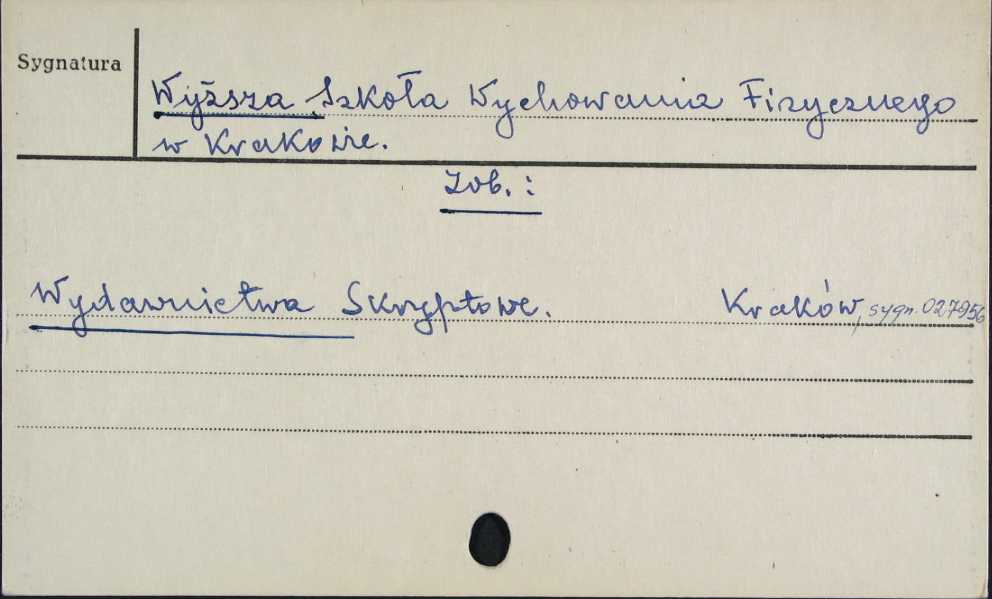 Sygnatura
Wyższa Szkoła Wychowania Fizycznego
w Krakowie.
Zob. :
Wydawnictwa Skryptowe. Kraków, sygn. 027956